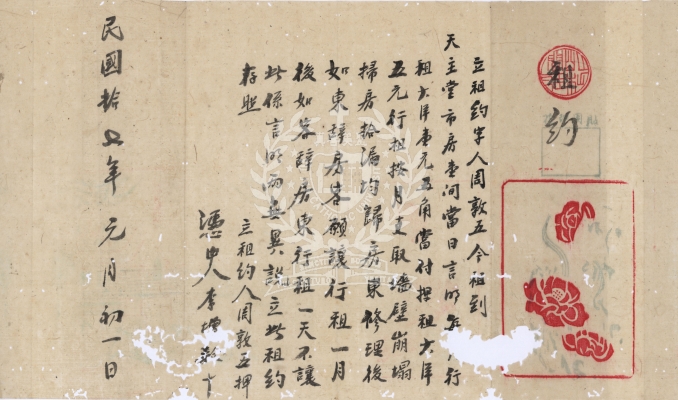 租約
立租約字人周敦五今租到
天主堂市房壹间當日言明每月行
租大洋壹元五角當付押租大洋
五元行租按月支取墙壁崩塌
掃房拾漏均歸房東修理後
如東辞房客願讓行租一月
後如客辞房東行租一天不讓
此係言明兩無異説立此租約
存照
立租約人周敦五押
憑中人李
民國拾七年元月初一日